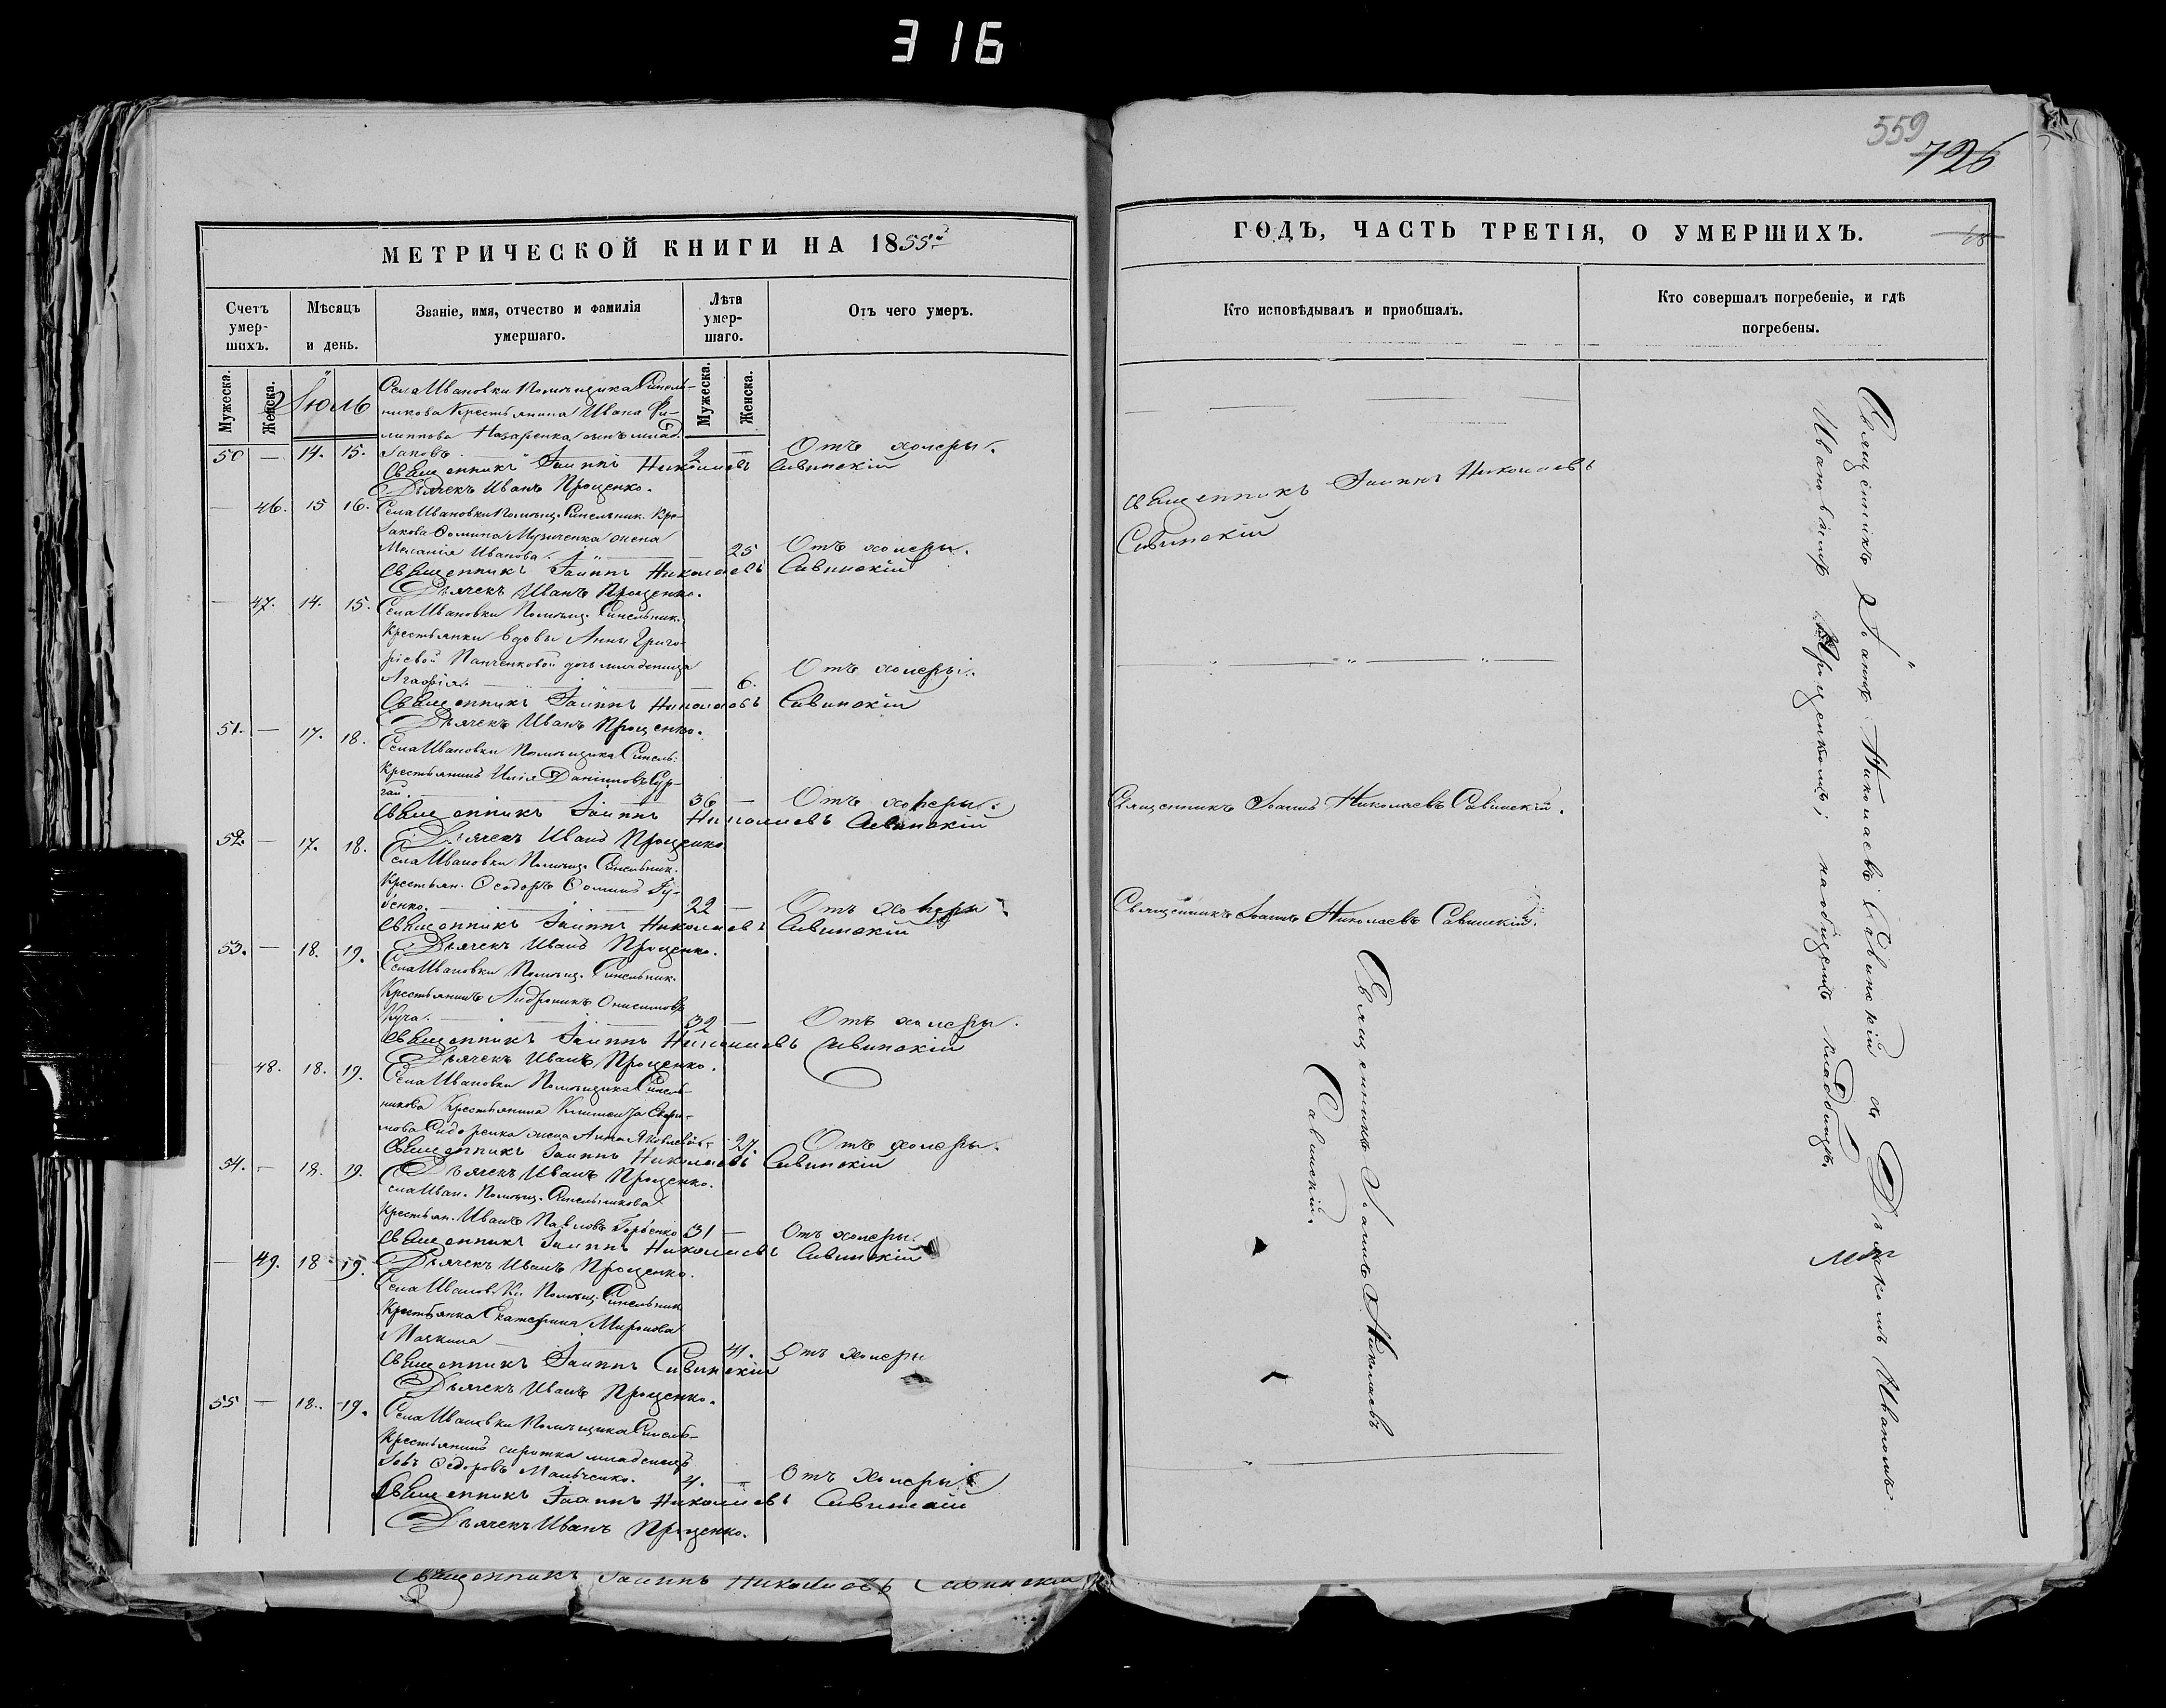 316
559
726
МЕТРИЧЕСКОЙ КНИГИ НА 1855й
Счетъ умер-шихъ.
Мѣсяцъ и день.
Званіе, имя, отчество и фамилія умершаго.
Лѣта умер-шаго.
Отъ чего умеръ.
Мужеска.
Женска.
Мужеска.
Женска.
Іюль
Села Ивановки Помѣщика Синель-
никова Крестьянина Ивана Фи-
липпова Назаренка сынъ млад.
50 — 14. 15. Іаковъ 2 — Отъ холеры.
Священникъ Іоаннъ Николаевъ Савинскій
Дьячекъ Иванъ Проценко.
— 46. 15 16. Села Ивановки Помѣщ. Синельник. Кре-
Музиченка жена
Меланія Иванова. — 25 Отъ холеры.
Священникъ Іоаннъ Николаевъ Савинскій
Дьячекъ Иванъ Проценко.
— 47. 14. 15. Села Ивановки Помѣщ. Синельник.
Крестьянки вдовы Анны Григо-
ріевой Панченковой дочь младеница
Агафія. — 6. Отъ холеры.
Священникъ Іоаннъ Николаевъ Савинскій
Дьячекъ Иванъ Проценко.
51. — 17. 18. Села Ивановки Помѣщика Синель:
Крестьянинъ Илія Даніиловъ Сур-
гай. 36 — Отъ холеры.
Священникъ Іоаннъ Николаевъ Савинскій
Дьячекъ Иванъ Проценко
52. — 17. 18. Села Ивановки Помѣщ. Синельник.
Крестьян. Ѳеодоръ Ѳоминъ Гу-
бенко. 22 — Отъ холеры.
Священникъ Іоаннъ Николаевъ Савинскій
Дьячекъ Иванъ Проценко.
53. — 18. 19. Села Ивановки Помѣщ. Синельник.
Крестьянинъ Андроникъ Онисимовъ
Куча. 32 — Отъ холеры.
Священникъ Іоаннъ Николаевъ Савинскій
Дьячекъ Иванъ Проценко.
— 48. 18. 19. Села Ивановки Помѣщика Синель-
никова Крестьянина
Сидоренка жена Анна Яковлева 27. Отъ холеры.
Священникъ Іоаннъ Николаевъ Савинскій
Дьячекъ Иванъ Проценко.
54. — 18. 19. Села Иван. Помѣщ. Синельникова
Крестьян. Иванъ Павловъ Горбенко 31 — Отъ холеры.
Священникъ Іоаннъ Николаевъ Савинскій
Дьячекъ Иванъ Проценко.
— 49. 18 19. Села Иванов. Ки Помѣщ. Синельник
Крестьянка Екатерина Миронова
41. Отъ холеры
Священникъ Іоаннъ Савинскій
Дьячекъ Иванъ Проценко.
55 — 18. 19. Села Ивановки Помѣщика Синель-
Крестьянинъ сиротка младенецъ
Іовъ Ѳедоровъ 4. — Отъ холеры
Священникъ Іоаннъ Николаевъ Савинскій
Дьячекъ Иванъ Проценко.
Священникъ Іоаннъ Николаевъ Савинскій
ГОДЪ, ЧАСТЬ ТРЕТІЯ, О УМЕРШИХЪ.
Кто исповѣдывалъ и пріобщалъ.
Кто совершалъ погребеніе, и гдѣ погребены.
Священникъ Іоаннъ Николаевъ
Савинскій
Священникъ Іоаннъ Николаевъ Савинскій.
Священникъ Іоаннъ Николаевъ Савинскій.
Священникъ Іоаннъ Николаевъ
Савинскій.
Священникъ Іоаннъ Николаевъ Савинскій съ Дьячкомъ Иваномъ
Ивановымъ Проценкомъ; на общемъ кладбищѣ.